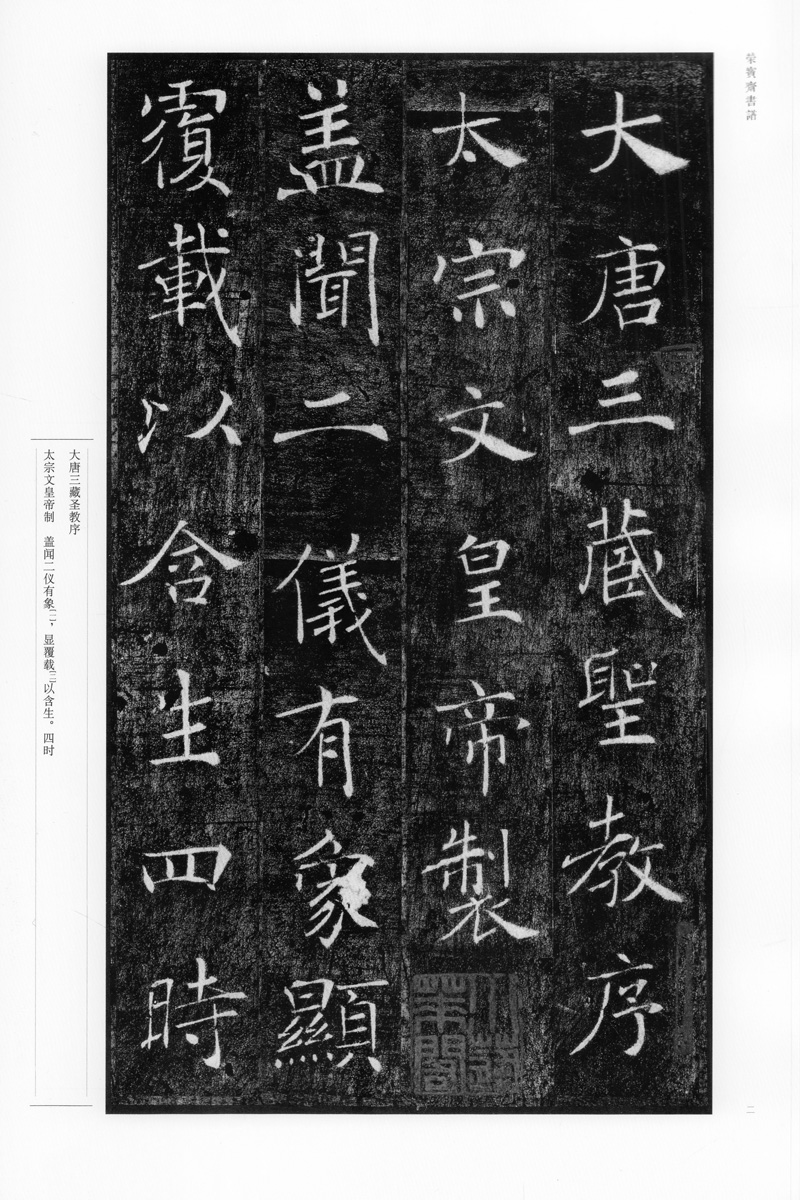 荣宾斋书谱
大唐三藏聖教序
太宗文皇帝製
盖聞二儀有象顯
覆載以含生四時
大唐三藏圣教序
太宗文皇帝制　盖闻二仪有象〔二〕，显覆载〔三〕以含生。四时
二